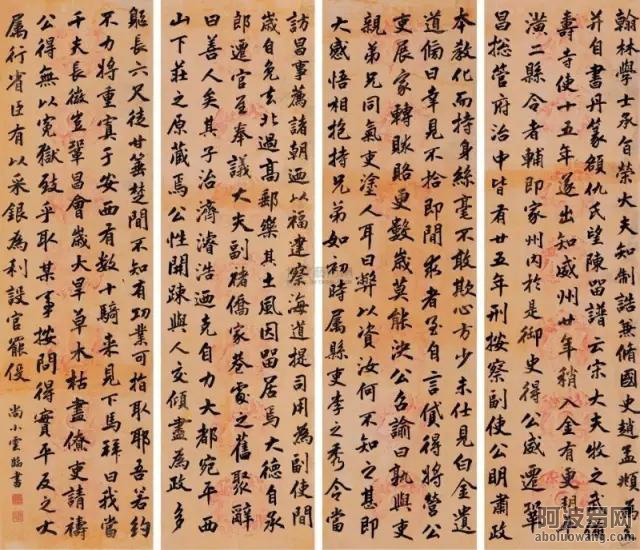 翰林學士承旨榮大夫知制誥兼脩國史趙孟頫
并自書丹篆額仇氏望陳留譜云宋大夫牧之
壽寺使十五年遂出知威州廿年稍入金有更
潢二縣令者輔即家州内於是御史得公威遷鞏
昌総管府治中皆有廿五年刑按察副使公明肅政
本教化而持身絲毫不敢欺心方少未仕見白金遺
道偏曰幸見不拾即間求者至自言貸得將營
吏展家轉賕賂更數歲莫能决公召諭曰孰與吏
親弟兄同氣吏塗人耳曰弊以資汝何不知之甚即
大感悟相抱持兄弟如初時属縣吏李之秀令當
訪昌事薦諸朝迺以福建察海道提司用為副使閩
歲自免去北過高郵樂其土風因留居焉大德自承
郎遷官至奉議大夫副褚僑家巷處之舊聚辭
曰善人矣其子治濟濬浩迺克自力大都宛平西
山下莊之原藏焉公性開踈與人交傾盡為政多
長六尺徒廿楚間不知有功業可指取耶吾若約
不力將重寘于安西有數十騎来見下馬拜曰我當
千夫長徵豈鞏昌會歲大旱草木枯盡僚吏請禱
公得無以寃獄致乎取某事按問得實平反之大
属行省臣有以采銀為利設官罷伇 尚小雲臨書
阿波罗网
aboluowang.com